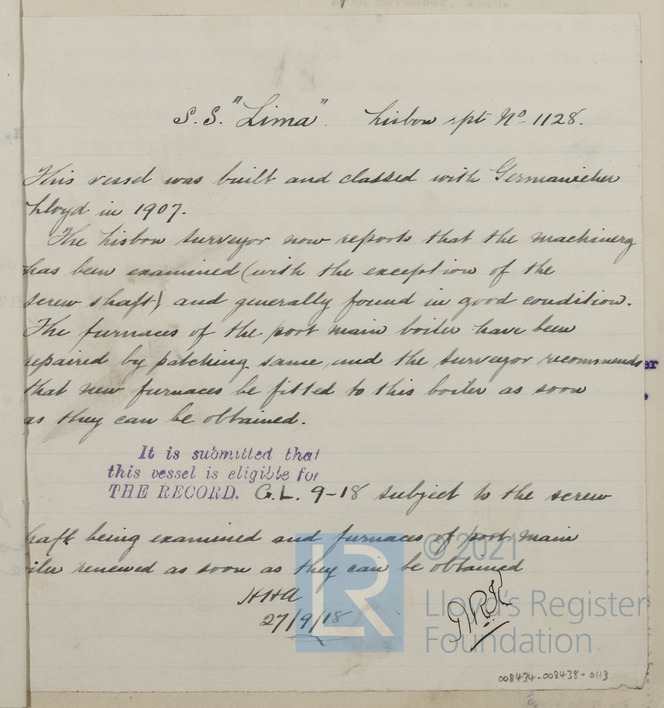 S.S. "Lima". Lisbon rpt Nº 1128.
This vessel was built and classed with Germanischer
Lloyd in 1907.
The Lisbon Surveyor now reports that the machinery
has been examined (with the exception of the
screw shaft) and generally found in good condition.
The furnaces of the port main boiler have been
repaired by patching same, and the Surveyor recommends
that new furnaces be fitted to this boiler as soon
as they can be obtained.
It is submitted that
this vessel is eligible for
THE RECORD. G.L. 9-18 subject to the screw
haft being examined and furnaces of port main
iler renewed as soon as they can be obtained
HHA
27/9/18
© 2021
LR
Lloyd's Register
Foundation
008434-008438-0113